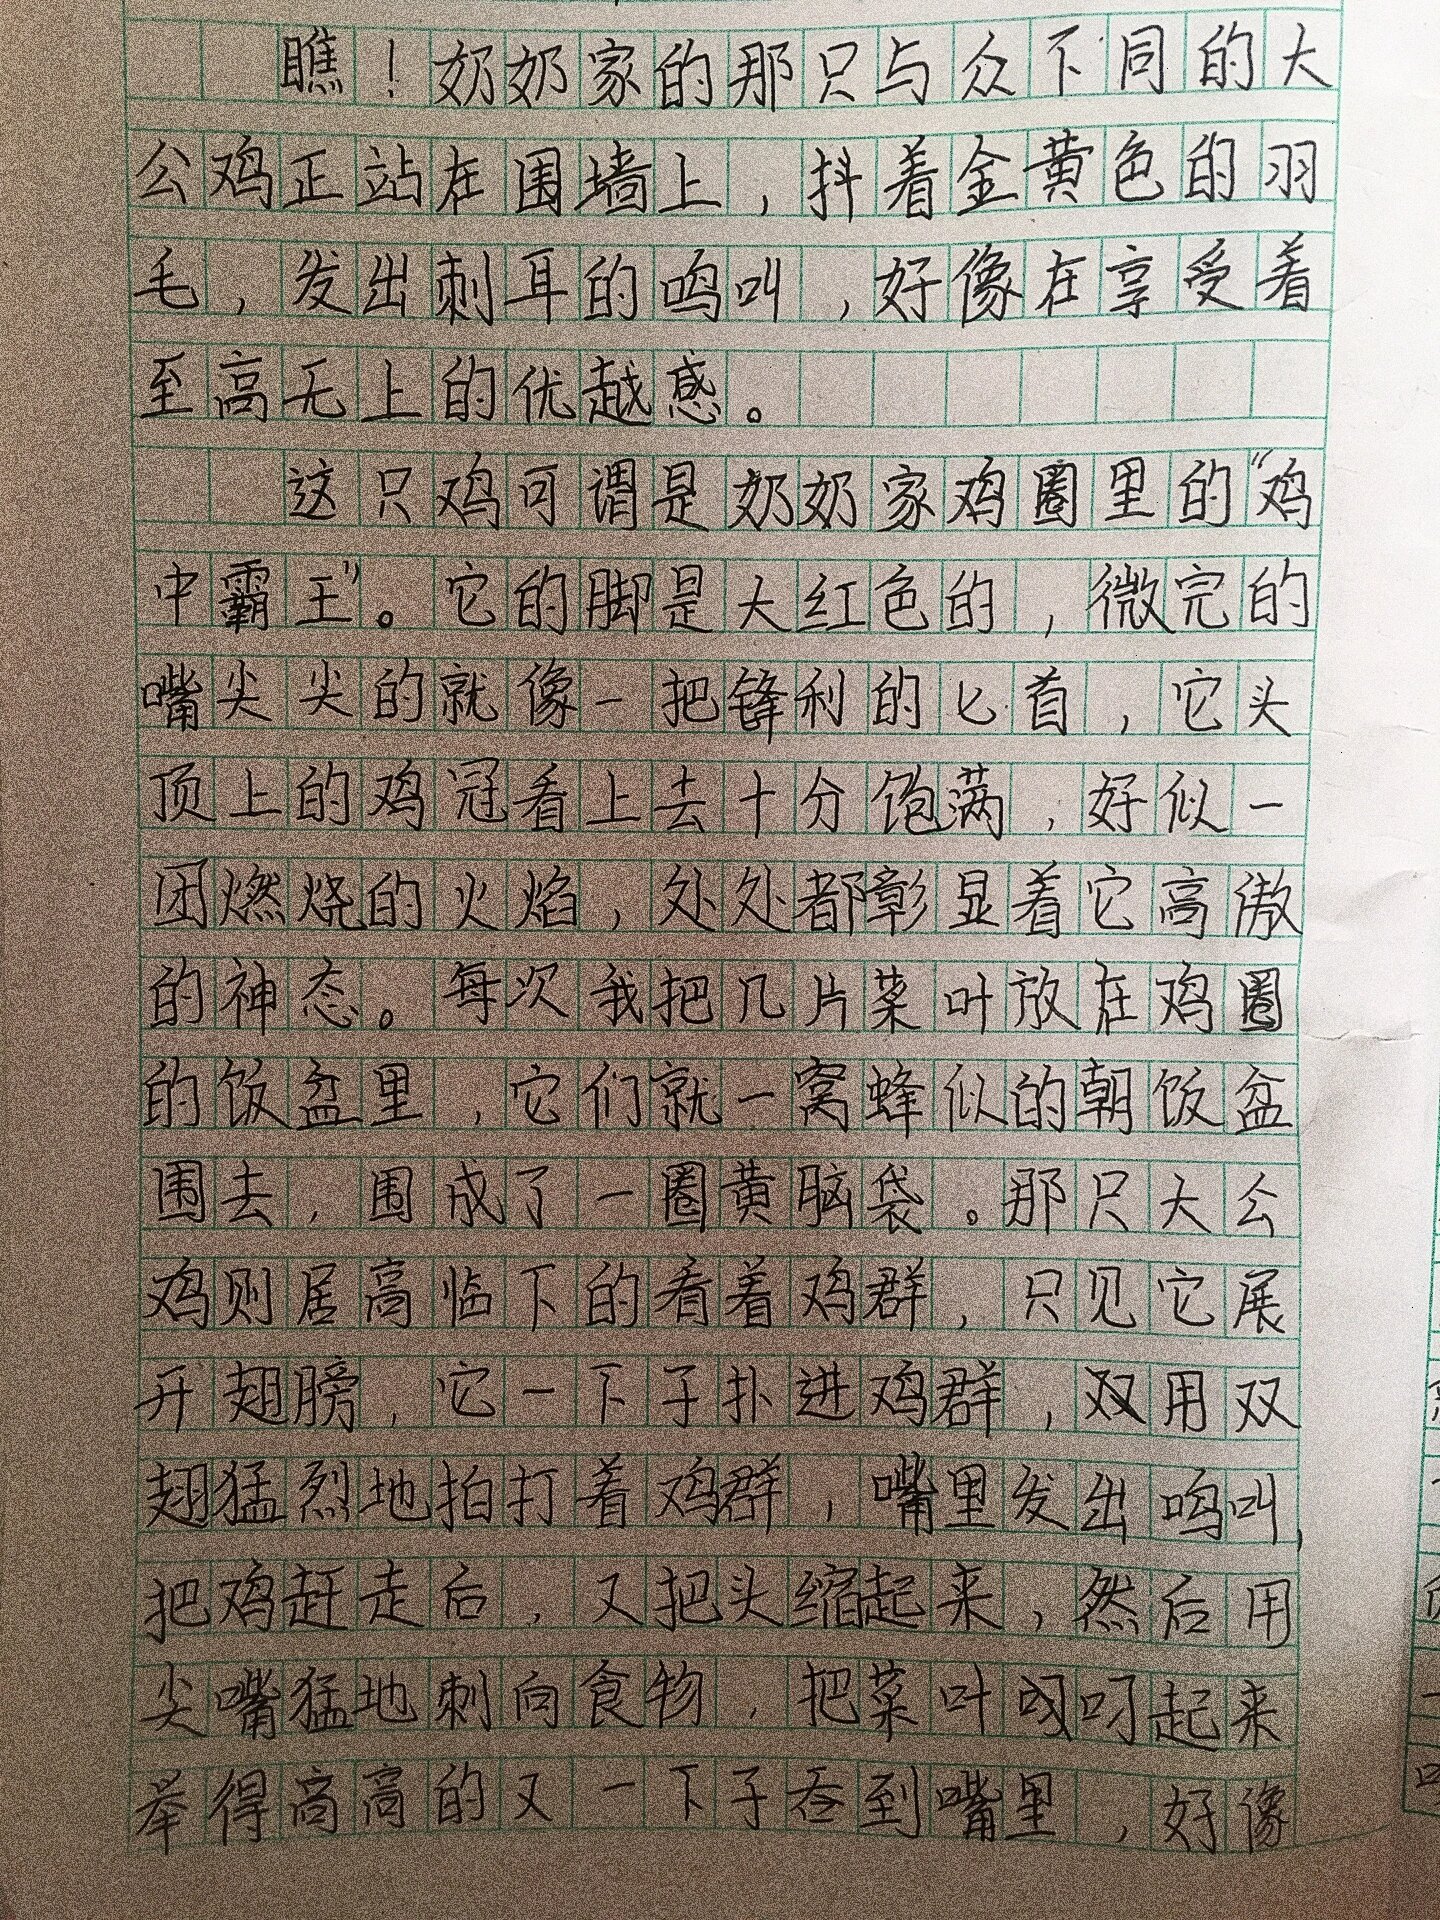 瞧！奶奶家的那只与众下同的大
公鸡正站在围墙上，抖着金黄色的羽
毛，发出刺耳的鸣叫，好像在享受着
至高无上的优越感。
这只鸡可谓是奶奶家鸡圈里的“鸡
中霸王”。它的脚是大红色的，微完的
嘴尖尖的就像一把锋利的匕首，它头
顶上的鸡冠看上去十分饱满，好似一
团燃烧的火焰，处处都彰显着它高傲
的神态。每次我把几片菜叶放在鸡圈
的饭盆里，它们就一窝蜂似的朝饭盆
围去，围成了一圈黄脑袋。那只大公
鸡则居高临下的看着鸡群，只见它展
开翅膀，它一下子扑进鸡群，用双
翅猛烈地拍打着鸡群，嘴里发出鸣叫，
把鸡赶走后，又把头缩起来，然后用
尖嘴猛地刺向食物，把菜叶叼起来
举得高高的又一下子吞到嘴里，好像